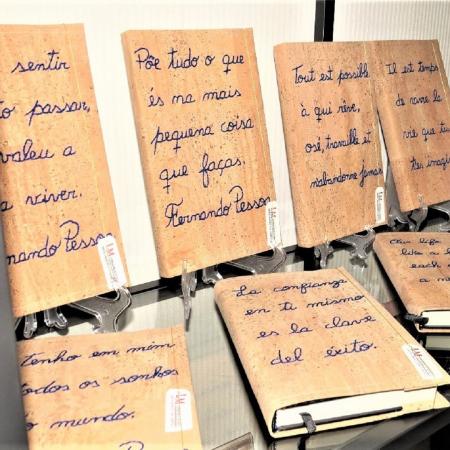 sentir
to passar,
valeu a
a viver.
nando Pessoa
Põe tudo o que
és na mais
pequena coisa
que faças.
Fernando Pessoa
Tout est possible
à qui rêve,
ose, travaille et
n'abandonne jamais
Il est temps
de vivre la
vie que tu
t'es imagin
Our life
like a b
each
a n
La confianza
en ti mismo
es la clave
del éxito.
tenho em mim
todos os sonhos
o mundo.
Pessoa